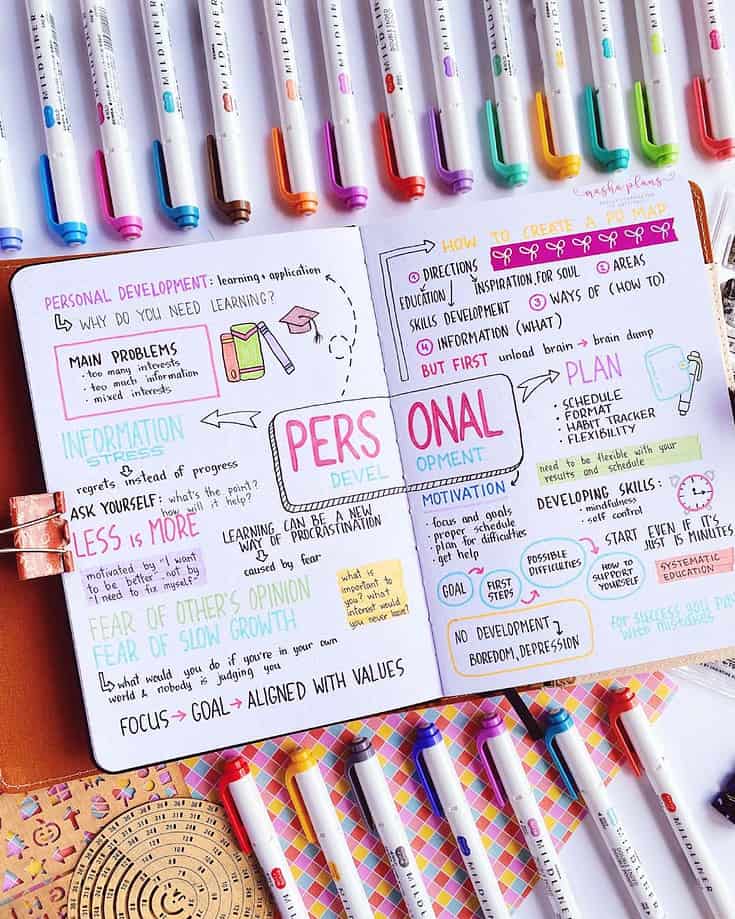 MILDLINER
MILDLINER
MILDLINER
MILDLINER
MILDLINER
MILDLINER
MILDLINER
MILDLINER
MILDLINER
MILDLINER
MILDLINER
masha plans
PERSONAL DEVELOPMENT: learning + application
WHY DO YOU NEED LEARNING?
MAIN PROBLEMS
· too many interests
· too much information
· mixed interests
INFORMATION
STRESS
regrets instead of progress
ASK YOURSELF: what's the point?
how will it help?
LESS is MORE
motivated by "I want
to be better" not by
"I need to fix myself"
LEARNING CAN BE A NEW
WAY OF PROCRASTINATION
caused by fear
FEAR OF OTHER'S OPINION
FEAR OF SLOW GROWTH
what is
important to
you? what
interest would
you never leave?
what would you do if you're in your own
world & nobody is judging you
FOCUS → GOAL → ALIGNED WITH VALUES
PERSONAL
DEVELOPMENT
HOW TO CREATE A PD MAP
① DIRECTIONS
② AREAS
EDUCATION
INSPIRATION, FOR SOUL
SKILLS DEVELOPMENT
③ WAYS OF (HOW TO)
④ INFORMATION (WHAT)
BUT FIRST unload brain → brain dump
PLAN
· SCHEDULE
· FORMAT
· HABIT TRACKER
· FLEXIBILITY
need to be flexible with your
results and schedule
MOTIVATION
· focus and goals
· proper schedule
· plan for difficulties
· get help
DEVELOPING SKILLS:
· mindfulness
· self control
START EVEN IF IT'S
JUST 15 MINUTES
GOAL
FIRST
STEPS
POSSIBLE
DIFFICULTIES
HOW TO
SUPPORT
YOURSELF
SYSTEMATIC
EDUCATION
NO DEVELOPMENT
BOREDOM, DEPRESSION
for success you
with mistakes
MILDLINER
MILDLINER
MILDLINER
MILDLINER
MILDLINER